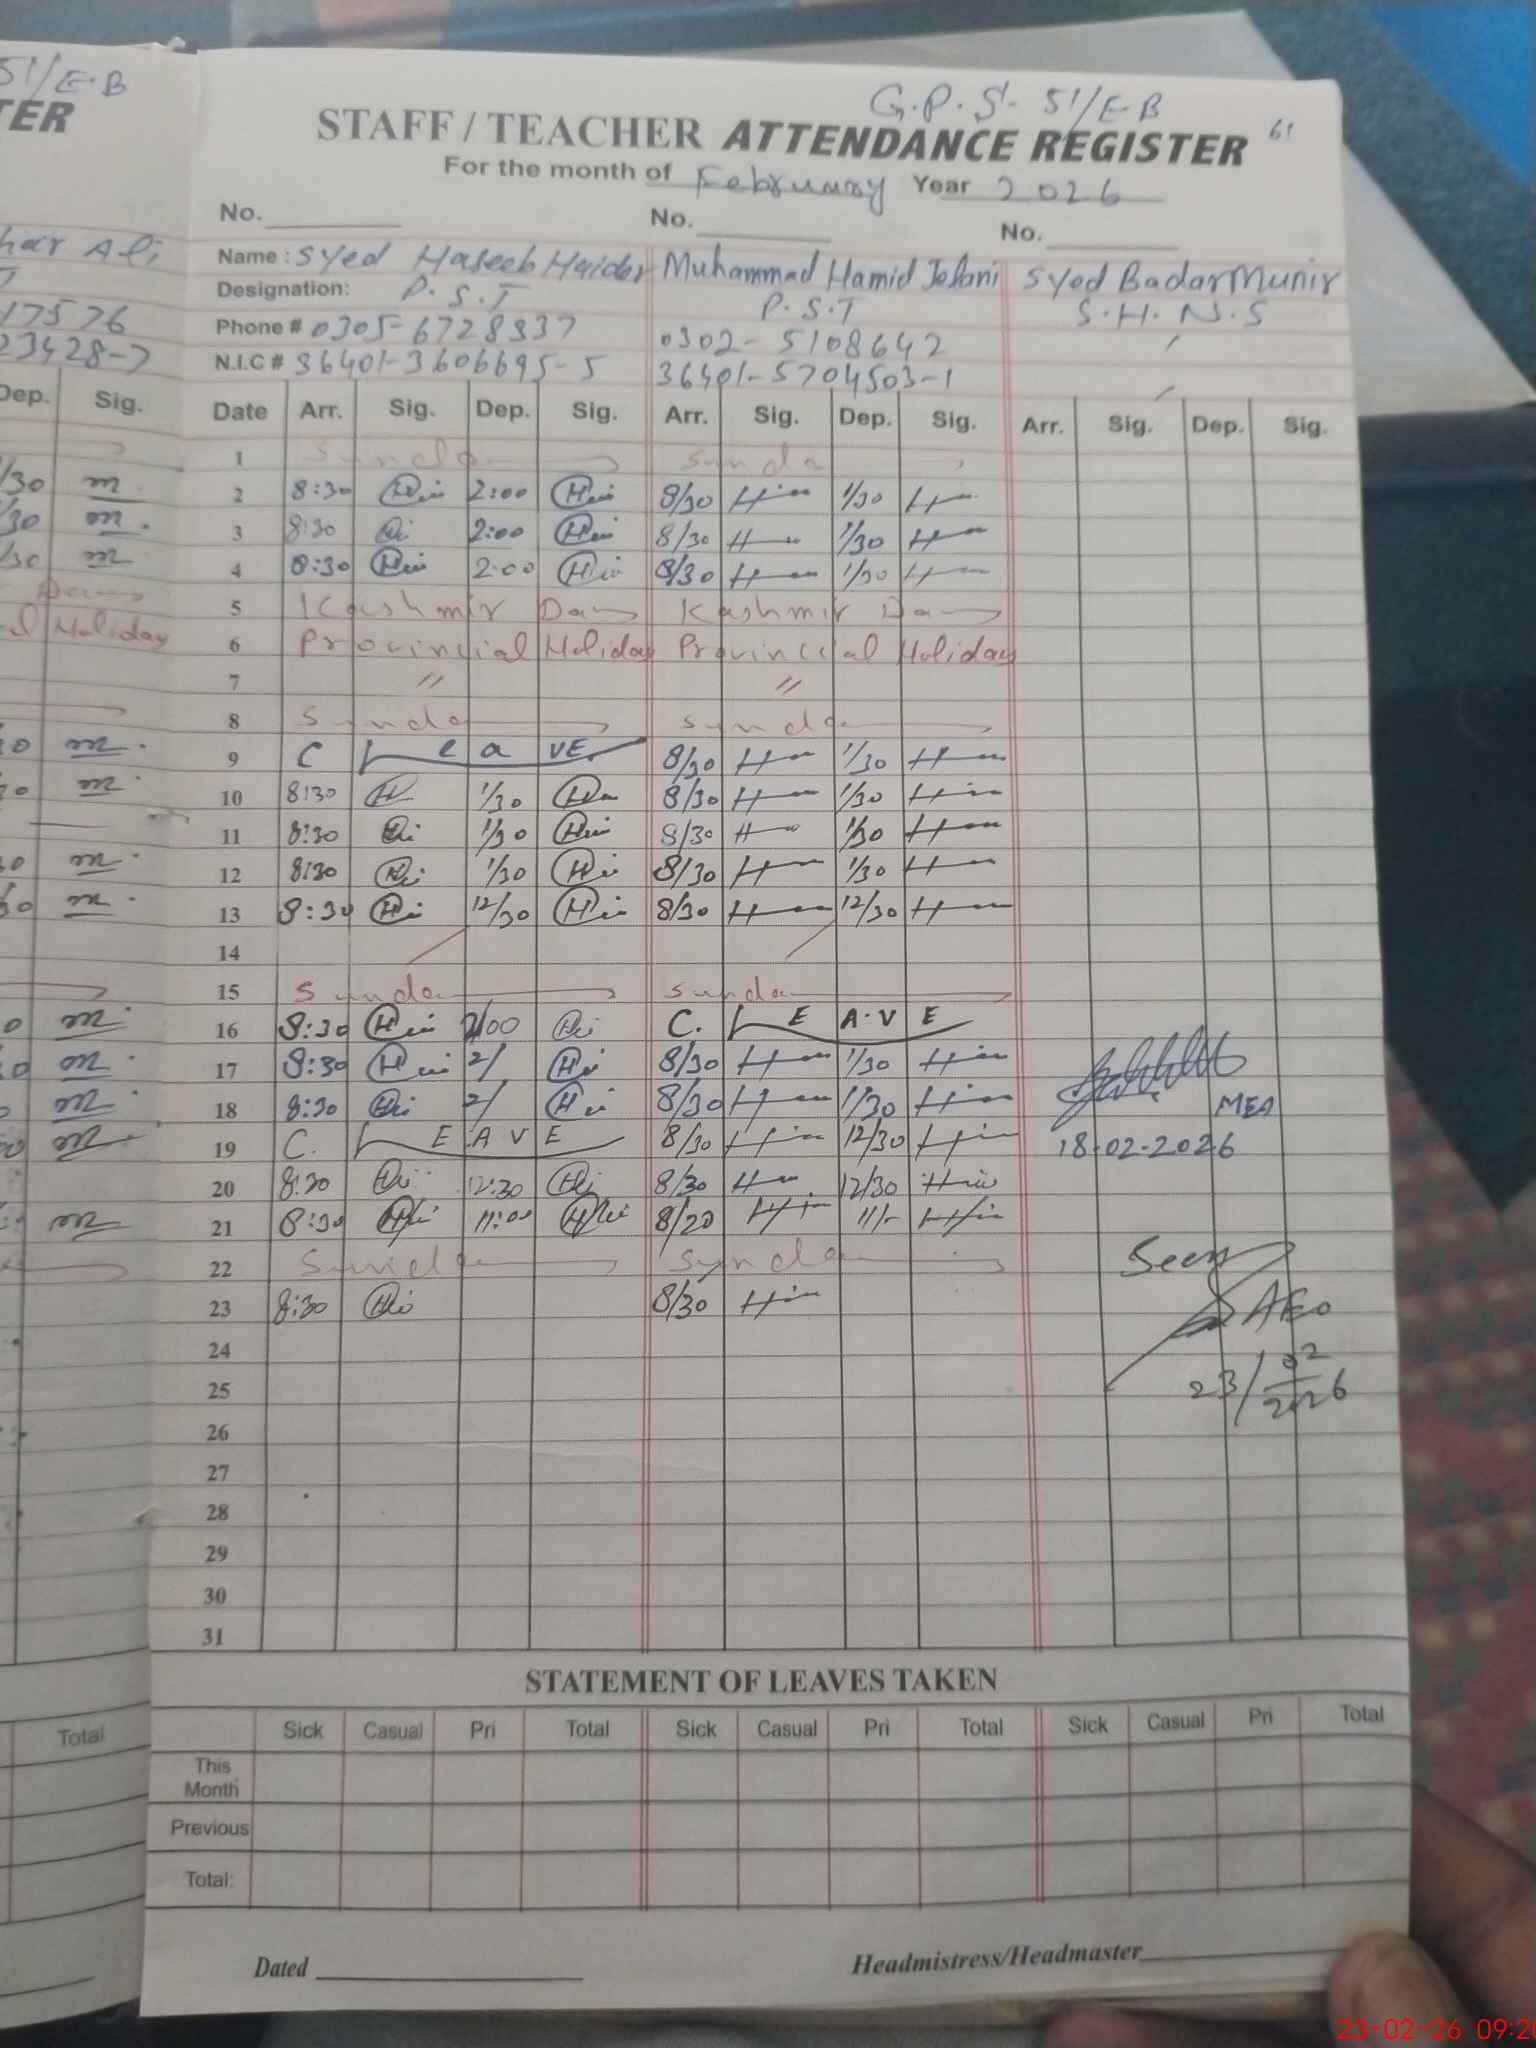 51/E-B
TER
G.P.S- 51/E-B
61
STAFF / TEACHER ATTENDANCE REGISTER
For the month of February Year 2026
No. No. No.
har Ali
Name : Syed Haseeb Haider Muhammad Hamid Jelani Syed Badar Munir
Designation: P.S.T P.S.T S.H.N.S
17576 Phone # 0305-6728937 0302-5108642
23428-7 N.I.C # 36401-3606695-5 36401-5704503-1
Dep. Sig. Date Arr. Sig. Dep. Sig. Arr. Sig. Dep. Sig. Arr. Sig. Dep. Sig.
1 Sunda Sunda
/30 2 8:30 2:00 8/30 1/30
/30 3 8:30 2:00 8/30 1/30
/30 4 8:30 2:00 8/30 1/30
5 Kashmir Day Kashmir Day
l Holiday 6 Provincial Holiday Provincial Holiday
7 // //
8 Sunda Sunda
30 9 C LeaVE. 8/30 1/30
30 10 8:30 1/30 8/30 1/30
11 8:30 1/30 8/30 1/30
30 12 8:30 1/30 8/30 1/30
30 13 8:30 12/30 8/30 12/30
14
15 Sunda Sunda
0 16 8:30 2/00 C. LEAVE
0 17 8:30 2/ 8/30 1/30
18 8:30 2/ 8/30 1/30 MEA
19 C. LEAVE 8/30 12/30 18-02-2026
20 8:30 12:30 8/30 12/30
21 8:30 11:00 8/20 11/-
22 Sunda Sunda Seen
23 8:30 8/30 AEO
24
25 23/02/2026
26
27
28
29
30
31
STATEMENT OF LEAVES TAKEN
Total Sick Casual Pri Total Sick Casual Pri Total Sick Casual Pri Total
This Month
Previous
Total:
Dated Headmistress/Headmaster
23-02-26 09:20